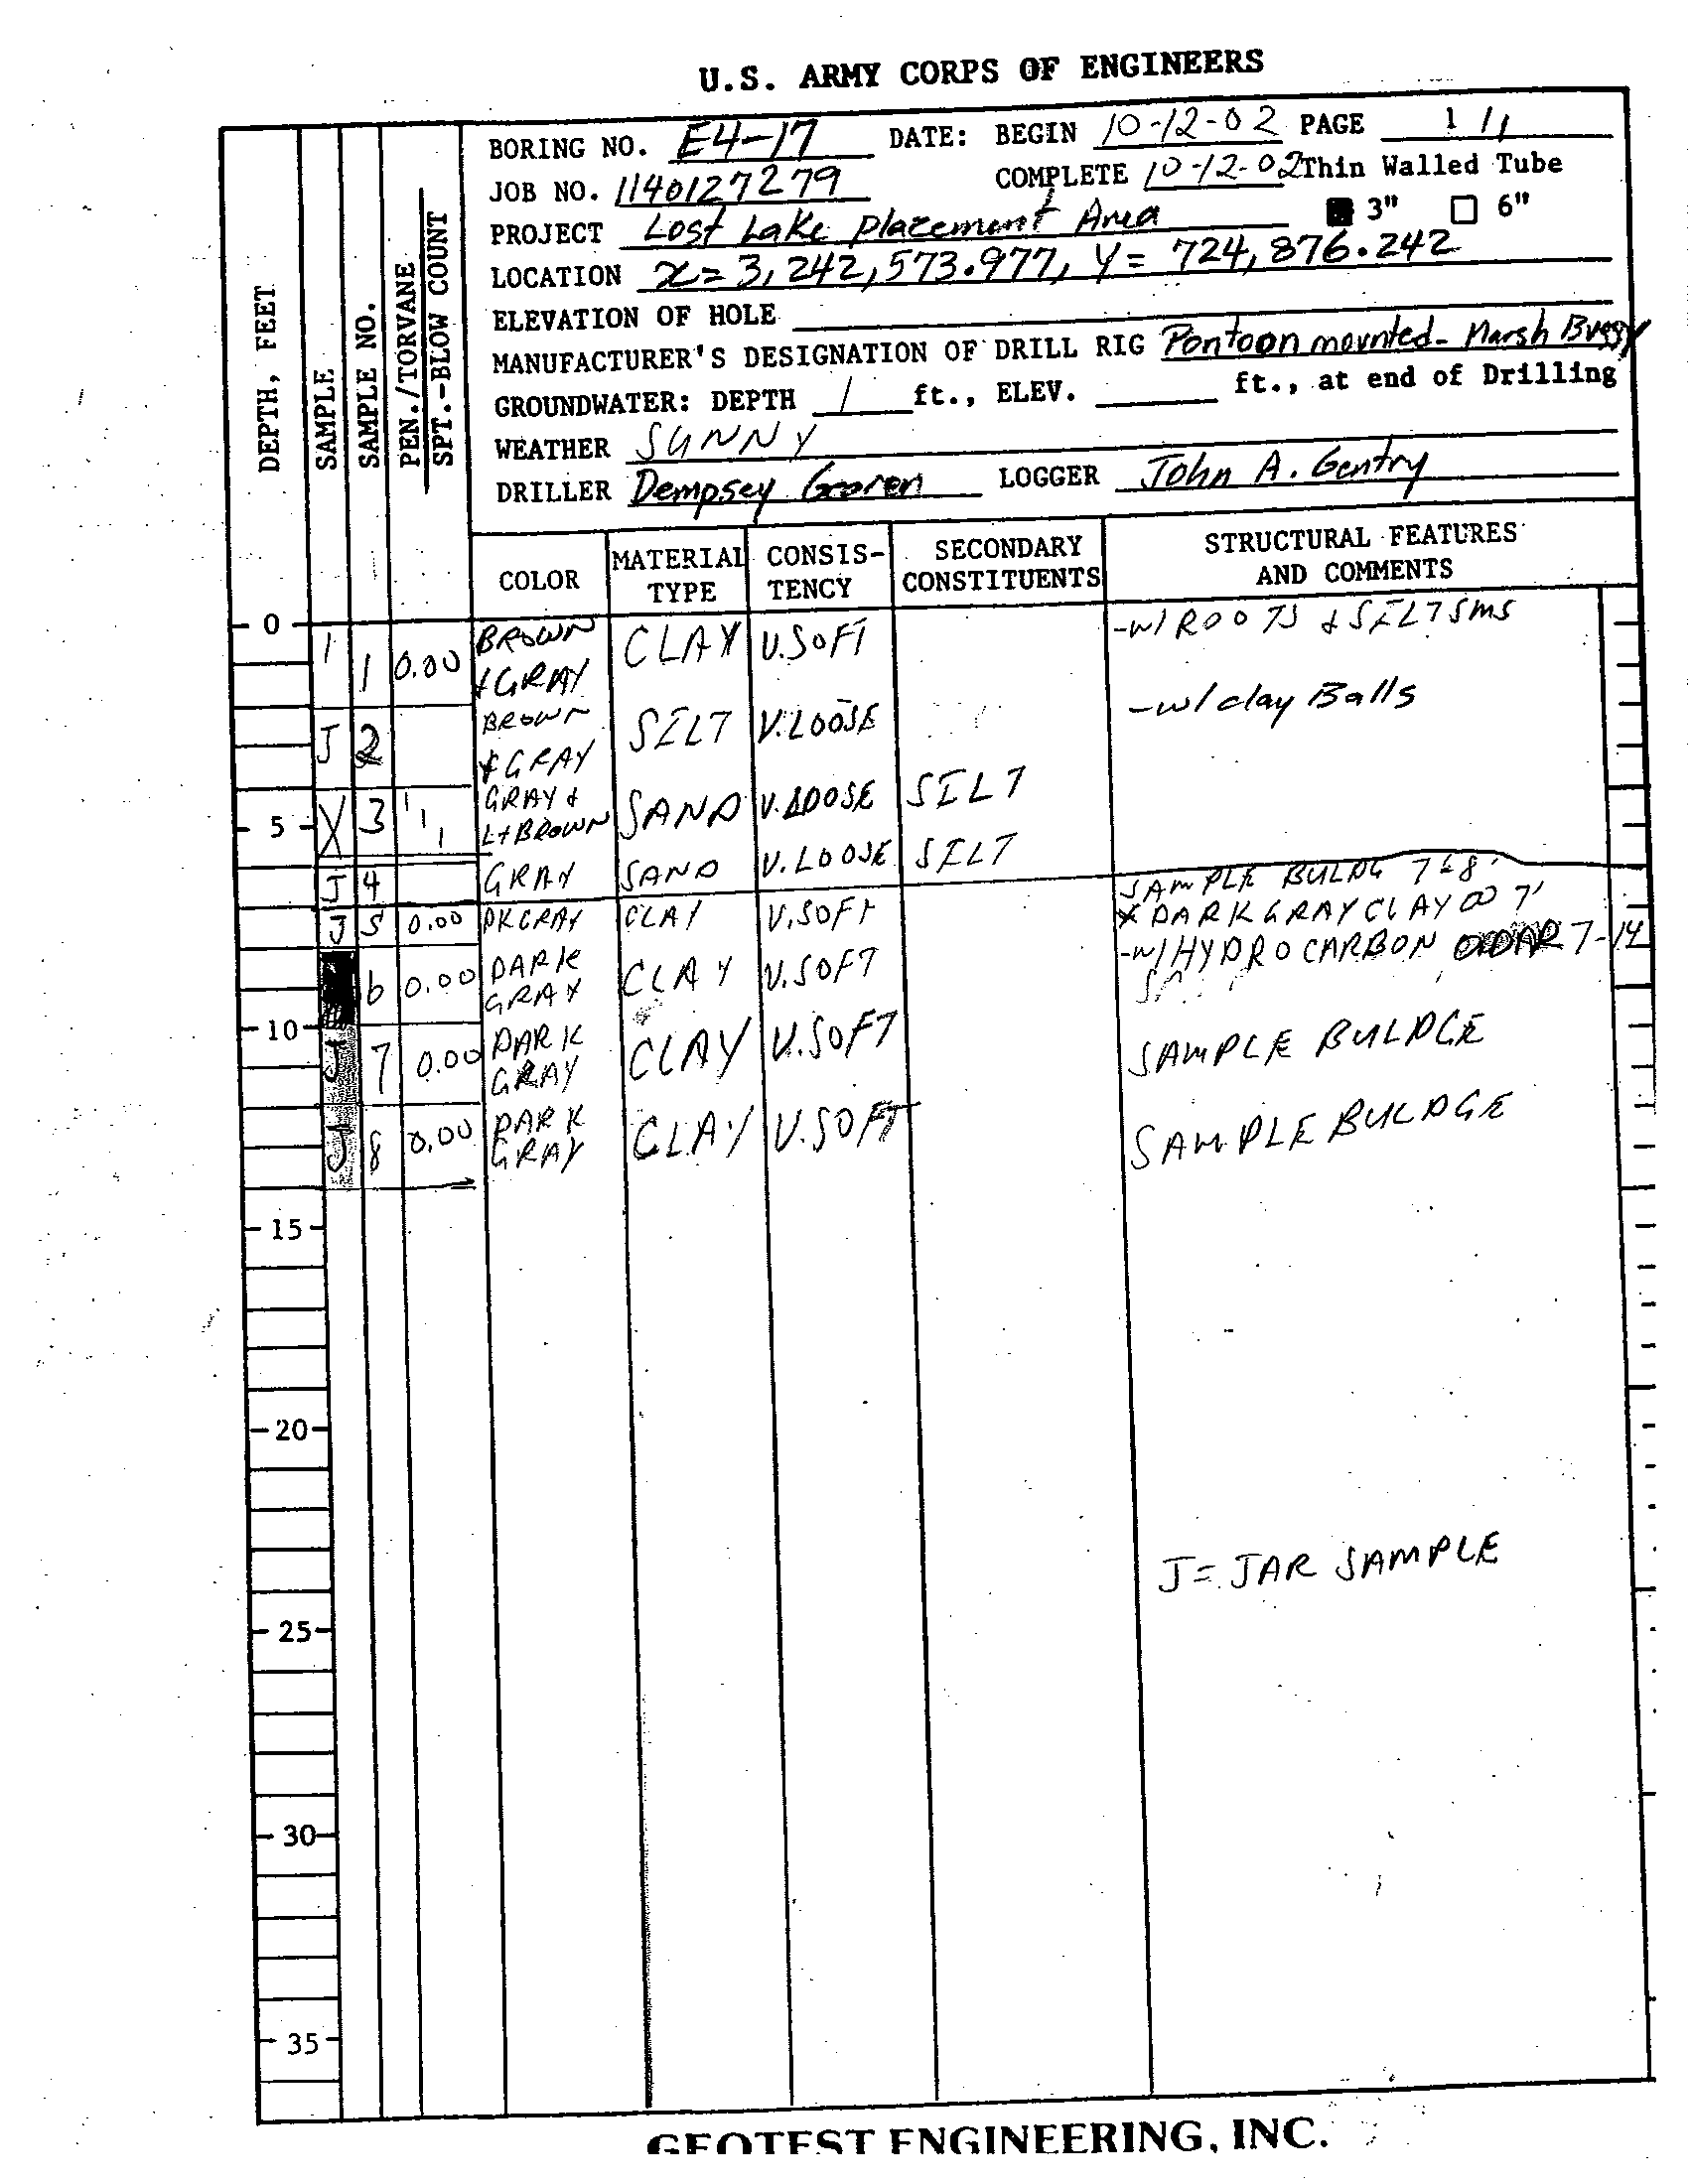 U.S. ARMY CORPS OF ENGINEERS
BORING NO. E4-17 DATE: BEGIN 10-12-02 PAGE 1 / 1
JOB NO. 1140127279 COMPLETE 10-12-02 Thin Walled Tube
PROJECT Lost Lake Placement Area 3" 6"
LOCATION x= 3,242,573.977, Y= 724,876.242
ELEVATION OF HOLE
MANUFACTURER'S DESIGNATION OF DRILL RIG Pontoon mounted- Marsh Buggy
GROUNDWATER: DEPTH 1 ft., ELEV. ft., at end of Drilling
WEATHER SUNNY
DRILLER Dempsey LOGGER John A. Gentry
DEPTH, FEET
SAMPLE
SAMPLE NO.
PEN./TORVANE
SPT.-BLOW COUNT
COLOR MATERIAL TYPE CONSIS-TENCY SECONDARY CONSTITUENTS STRUCTURAL FEATURES AND COMMENTS
0 1 1 0.00 BROWN & GRAY CLAY V.SOFT -W/ ROOTS & SILT SMS
J 2 BROWN & GRAY SILT V.LOOSE -w/ clay Balls
5 X 3 1 1 1 GRAY & LT BROWN SAND V.LOOSE SILT
J 4 GRAY SAND V.LOOSE SILT
SAMPLE BULDG 7 & 8'
J 5 0.00 DKGRAY CLAY V.SOFT * DARK GRAY CLAY @ 7'
-W/ HYDROCARBON ODAR 7-14
6 0.00 DARK GRAY CLAY V.SOFT
10 J 7 0.00 DARK GRAY CLAY V.SOFT SAMPLE BULDGE
J 8 0.00 DARK GRAY CLAY V.SOFT SAMPLE BULDGE
15
20
J= JAR SAMPLE
25
30
35
GEOTEST ENGINEERING, INC.